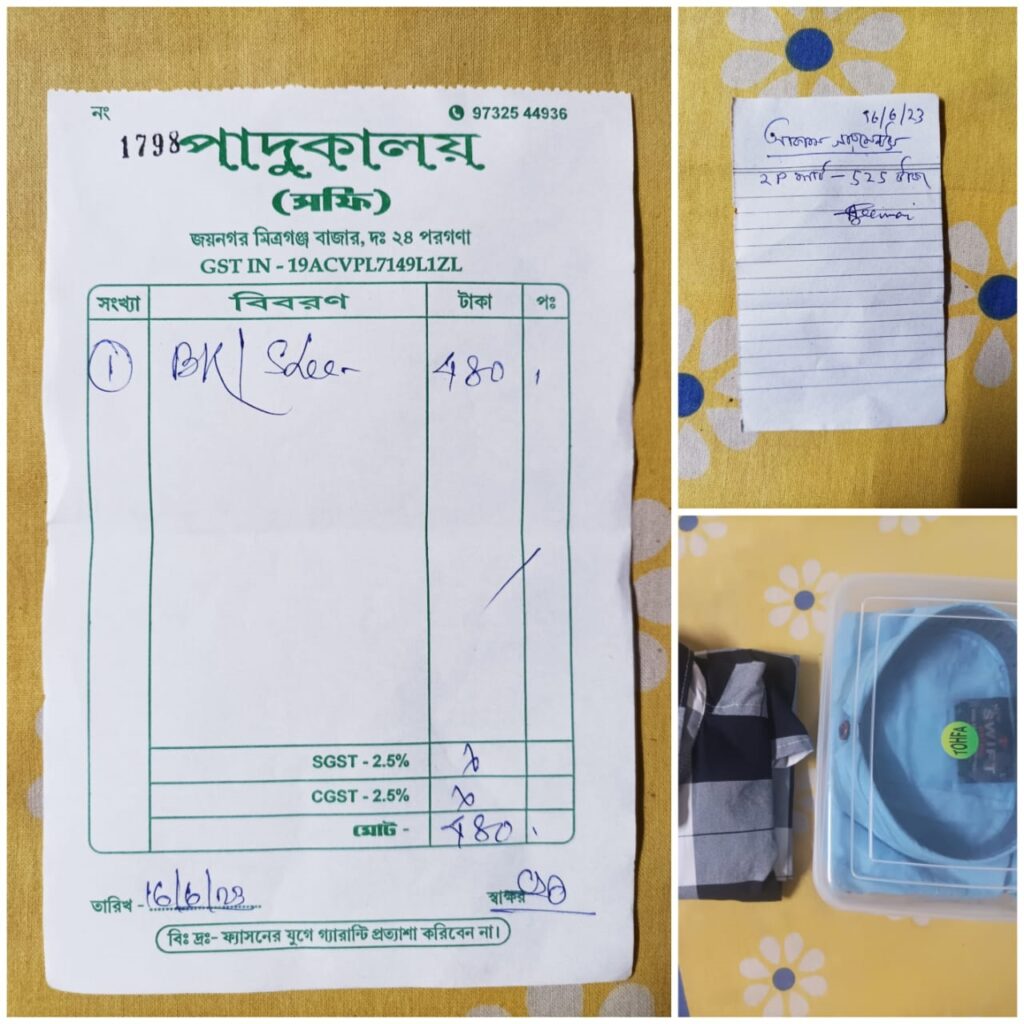 নং
97325 44936
1798
পাদুকালয়
(সফি)
জয়নগর মিত্রগঞ্জ বাজার, দঃ ২৪ পরগণা
GST IN - 19ACVPL7149L1ZL
সংখ্যা বিবরণ টাকা পঃ
1 BK/ 480
SGST - 2.5% x
CGST - 2.5% x
মোট - 480
তারিখ - 16/6/23
স্বাক্ষর
বিঃ দ্রঃ- ফ্যাসনের যুগে গ্যারান্টি প্রত্যাশা করিবেন না।
16/6/23
2P সার্ট - 525 টাকা
SWIFT
TOHFA